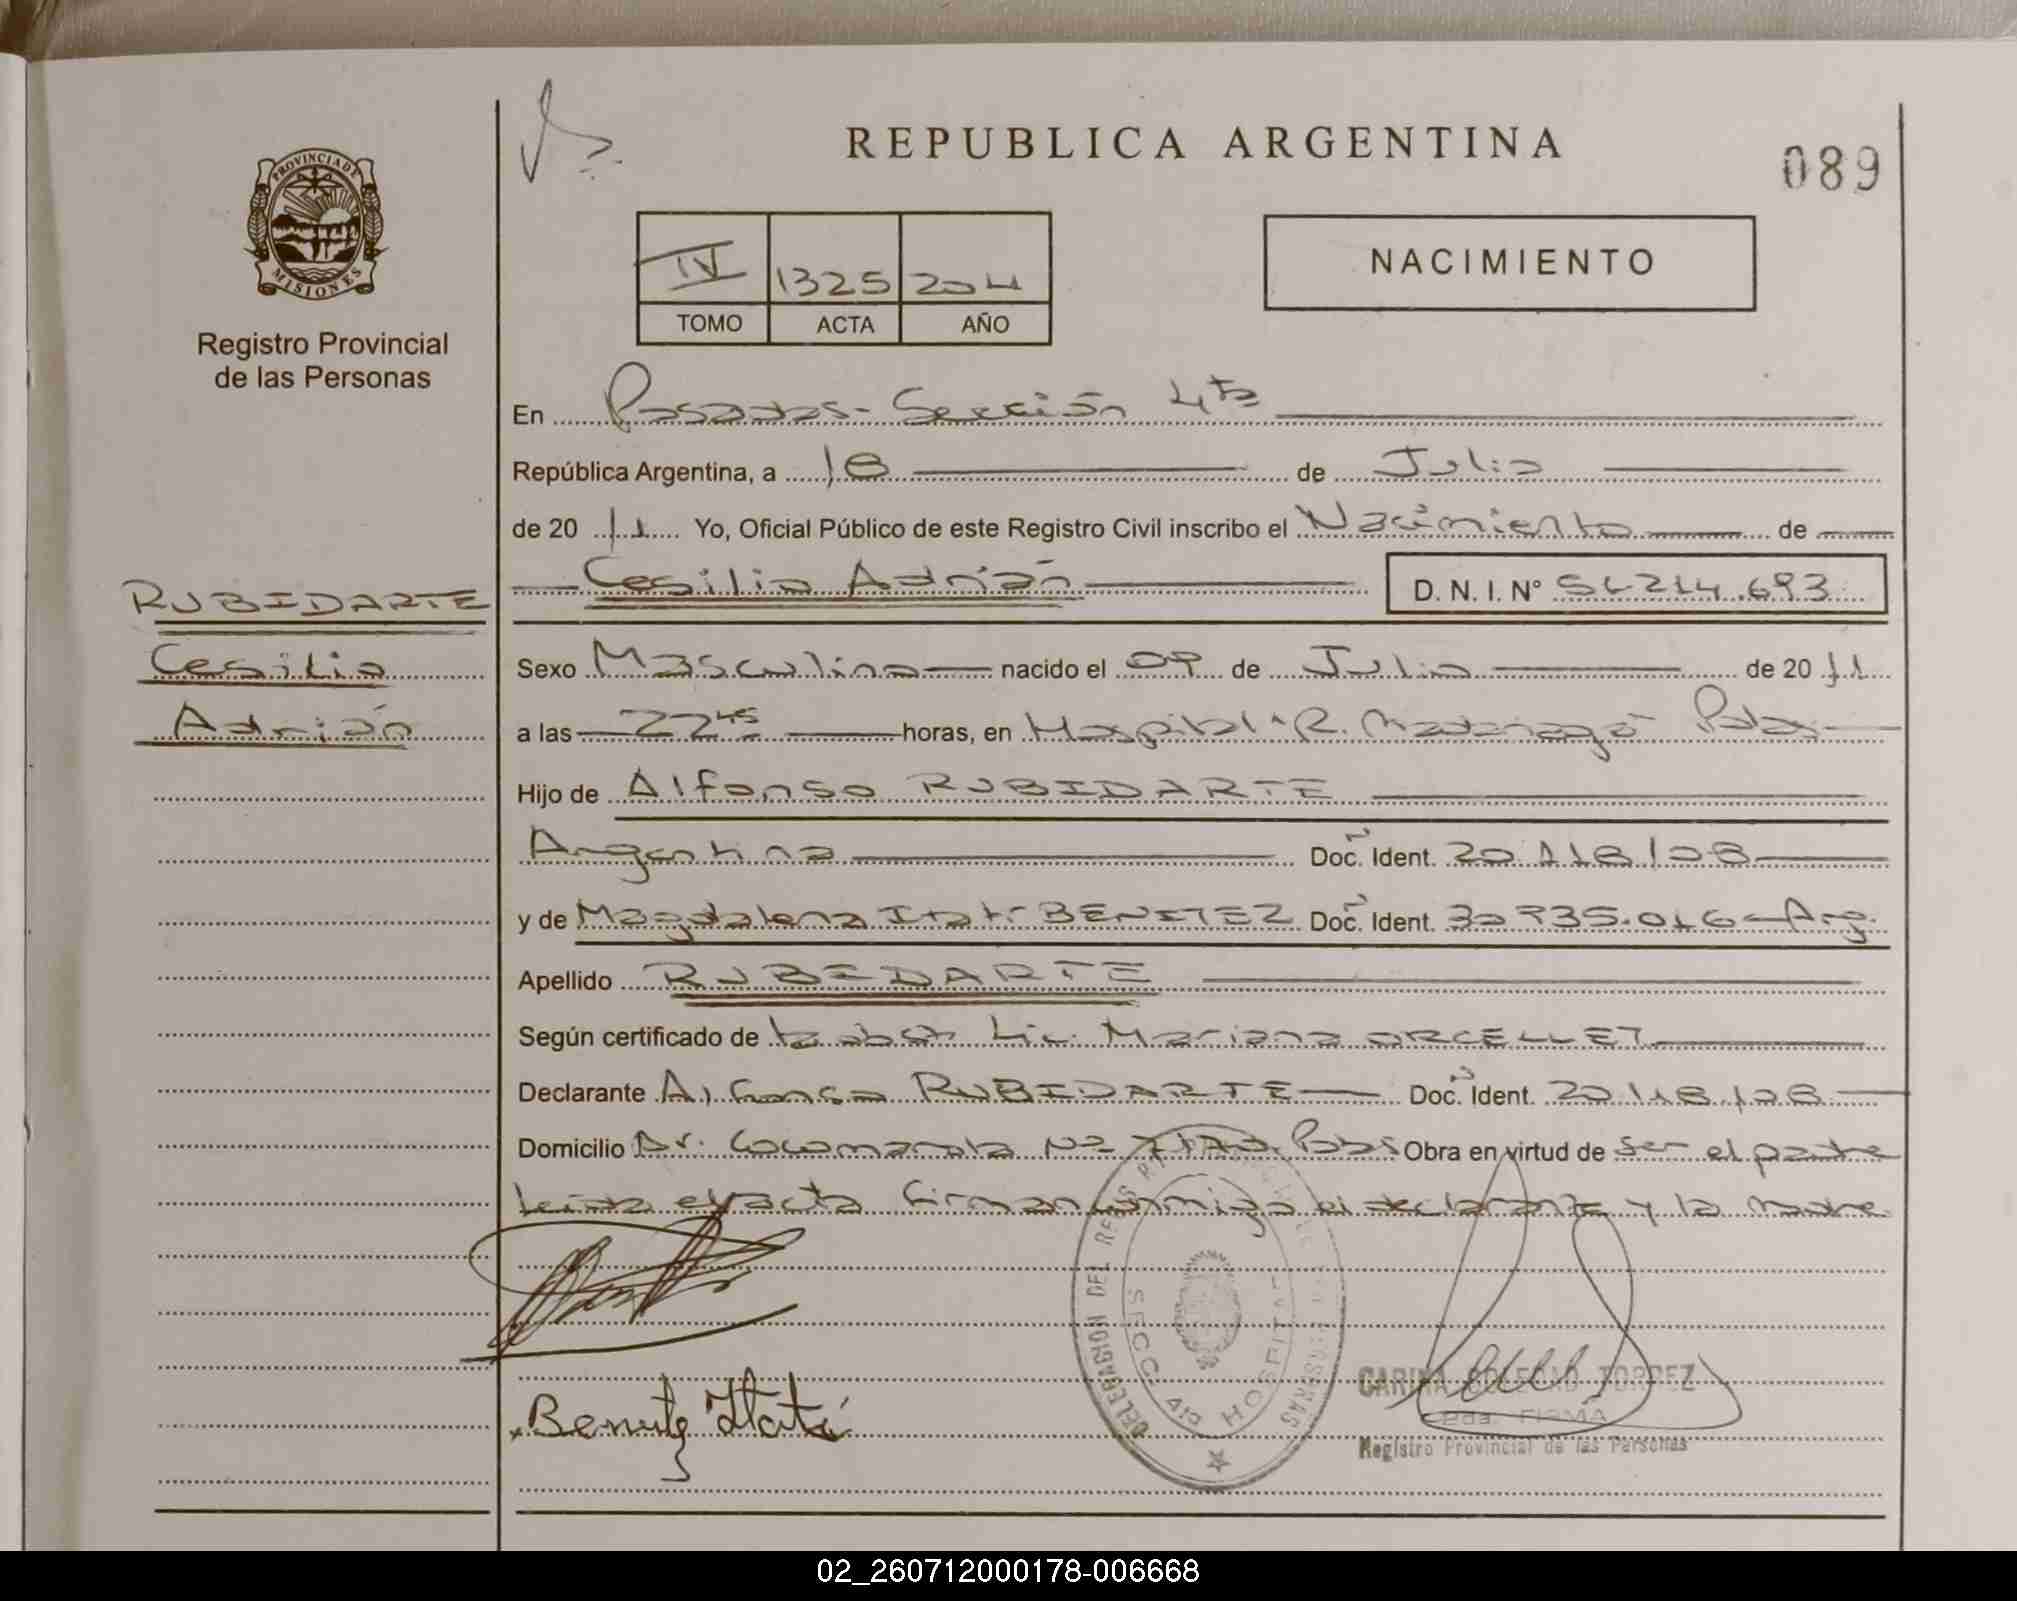 REPUBLICA ARGENTINA
089
PROVINCIA DE
MISIONES
Registro Provincial
de las Personas
NACIMIENTO
IV 1325 2011
TOMO ACTA AÑO
En Posadas - Sección 4ta
República Argentina, a 18 de Julio
de 20 11 Yo, Oficial Público de este Registro Civil inscribo el Nacimiento de
RUBIDARTE
Cesilio
Adrián
Cesilio Adrián D. N. I. Nº 51.214.693
Sexo Masculino nacido el 09 de Julio de 20 11
a las 22 45 horas, en Hospital R. Madariaga Pdas
Hijo de Alfonso RUBIDARTE
Argentina Doc. Ident. 20.118.108
y de Magdalena Itatí BENITEZ Doc. Ident. 30.735.016 - Arg.
Apellido RUBIDARTE
Según certificado de la obst. Lic. Mariana ORCELLET
Declarante Alfonso RUBIDARTE Doc. Ident. 20.118.108
Domicilio Av. Cocomarola Nº Pdas Obra en virtud de ser el padre
Leída exacta firman conmigo el declarante y la madre
Benitez Itatí
DELEGACION DEL REG. PERSONAS
SECC. 4ta HOSPITAL
CARINA SOLEDAD TORREZ
FIRMA
Registro Provincial de las Personas
02_260712000178-006668